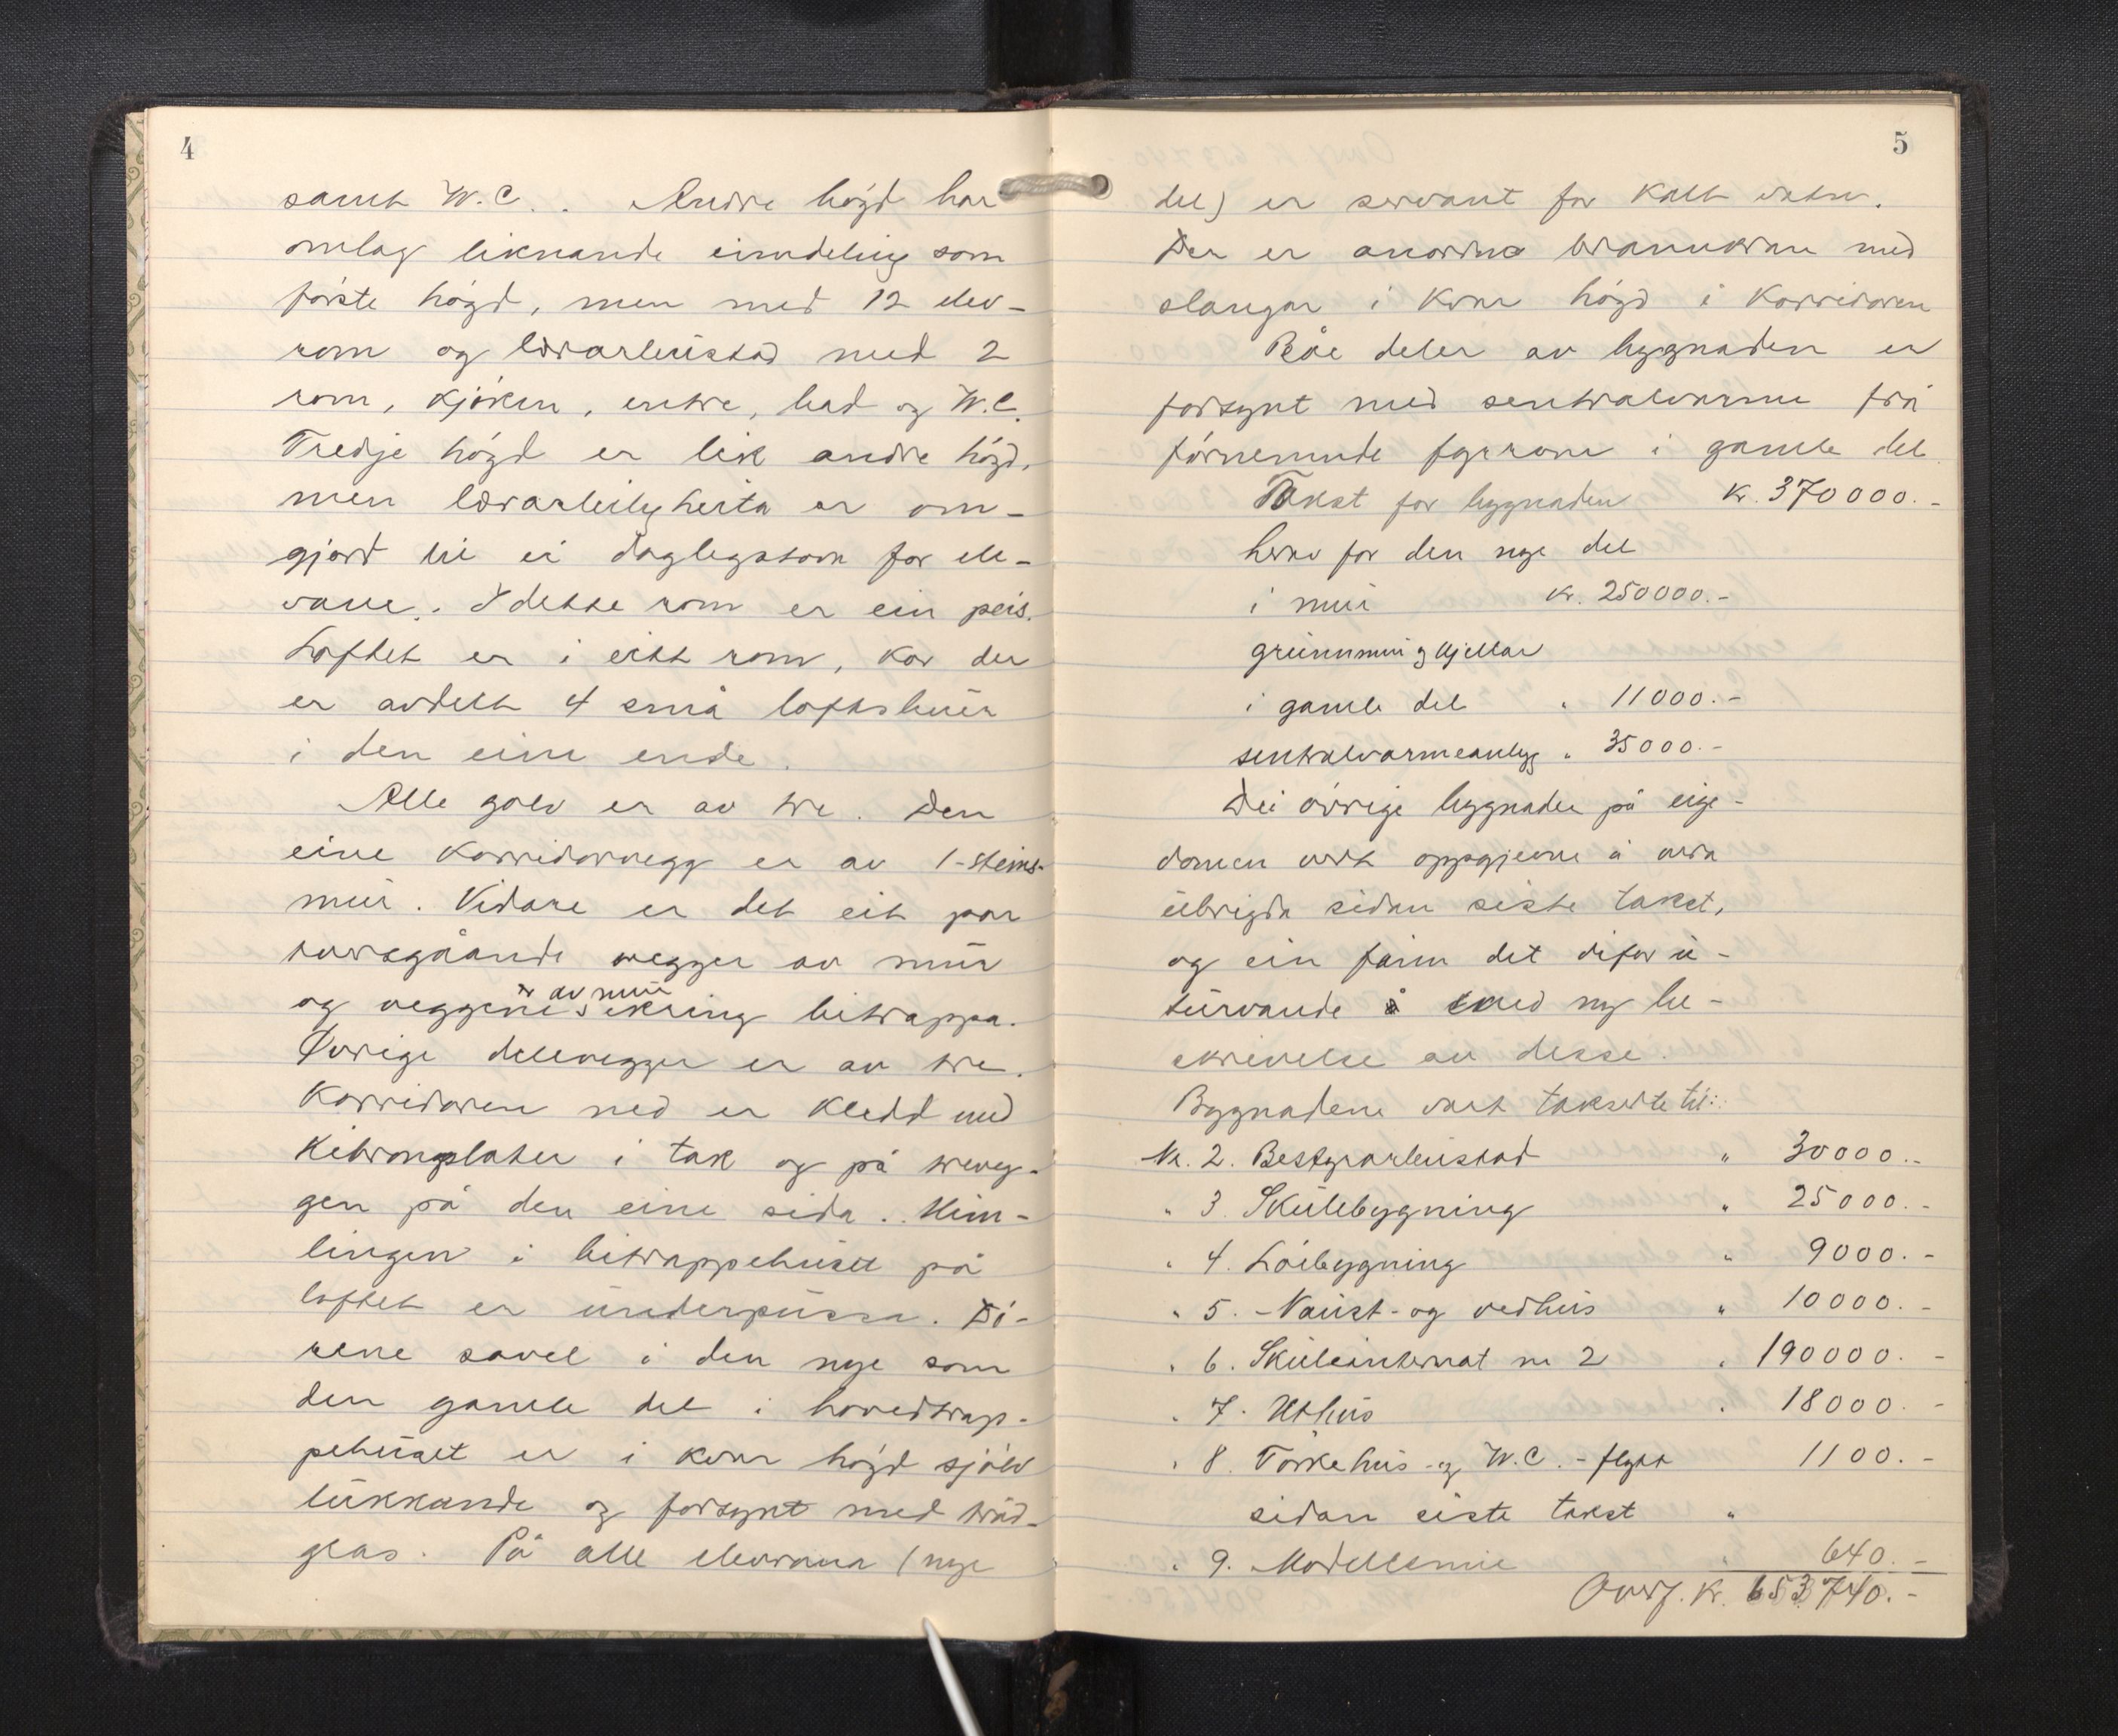 4
samt W.C. . Andre högd har
omlag liknande inndeling som
förste högd, men med 12 elev-
rom og lærarbustad med 2
rom, kjöken, entre, bad og W.C.
Tredje högd er lik andre högd,
men lærarleilyheita er om-
gjort til ei daglegstova for ele-
vane. I dette rom er ein peis.
Loftet er i eitt rom, kor der
er avdelt 4 små loftsbuer
i den eine ende.
Alle golv er av tre. Den
eine korridorvegg er av 1-steins-
mur. Vidare er det eit par
tversgåande vegger av mur
er av mur
og veggene ikring bitrappa.
Øvrige delevegger er av tre.
Korridoren ned er kledd med
plater i tak og på treveg-
gen på den eine sida. Him-
lingen i bitrappehuset på
loftet er underpussa. Dö-
rene sovel i den nye som
den gamle del i hovedtrap-
pehuset er i kvar högd sjölv
lukkande og forsynt med tråd-
glas. På alle elevroma (nye
5
del) er servant for kalt vatn.
Der er anordna brannkran med
slangar i kvar högd i korridoren
Båe deler av bygnaden er
forsynt med sentralvarme frå
förnemnde fyrrom i gamle del.
Takst for bygnaden kr. 370000.-
herav for den nye del
i mur kr. 250000.-
grunnmur og kjellar
i gamle del " 11000.-
sentralvarmeanlegg " 35000.-
Dei övrige bygnader på eige-
domen vart oppgjevne å vera
ubrigda sidan siste takst,
og ein fann det difor u-
turvande å med ny be-
skrivelse av desse.
Bygnadene vart takserte til:
Nr. 2. Bestyrarbustad " 30000.-
" 3. Skulebygning " 25000.-
" 4. Löebygning " 9000.-
" 5. Naust- og vedhus " 10000.-
" 6. Skuleinternat nr 2 " 190000.-
" 7. Uthus " 18000.-
" 8. Törkehus- og W.C. - flytt 1100.-
sidan siste takst "
" 9. " 640.-
Overf. kr. 653740.-